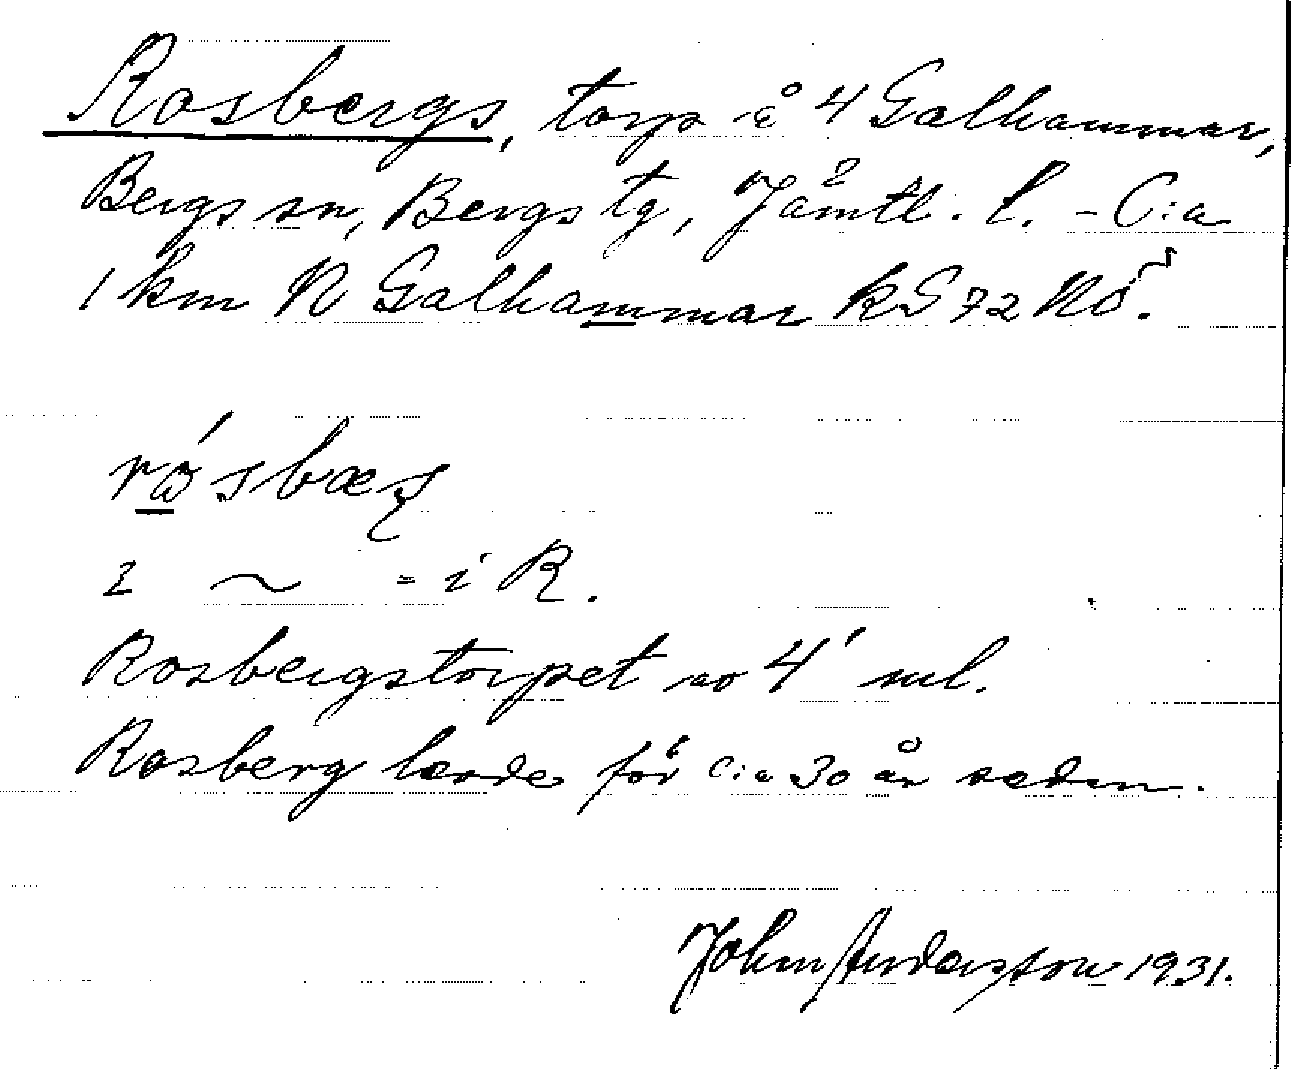 Rosbergs, torp å 4 Galhammar,
Bergs sn, Bergs tg, Jämtl. l. - C:a
1 km N Galhammar kS 72 NÖ.
i ~ = i R.
Rosbergstorpet 4' ml.
Rosberg levde för c:a 30 år sedan.
John Andersson 1931.